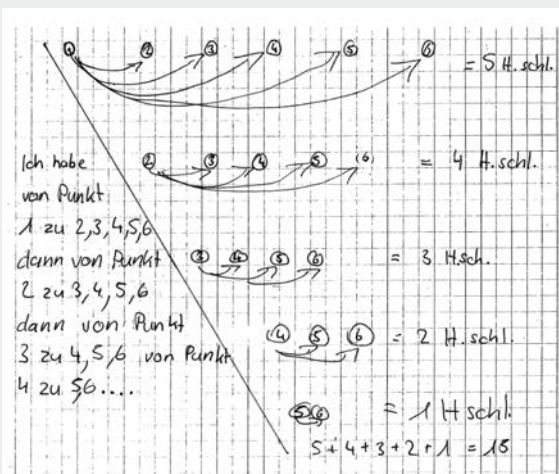 1 2 3 4 5 6 = 5 H.schl.
2 3 4 5 (6) = 4 H.schl.
3 4 5 6 = 3 H.sch.
4 5 6 = 2 H.schl.
5 6 = 1 H schl.
5+4+3+2+1 = 15
Ich habe
von Punkt
1 zu 2,3,4,5,6
dann von Punkt
2 zu 3,4,5,6
dann von Punkt
3 zu 4,5,6 von Punkt
4 zu 5,6....